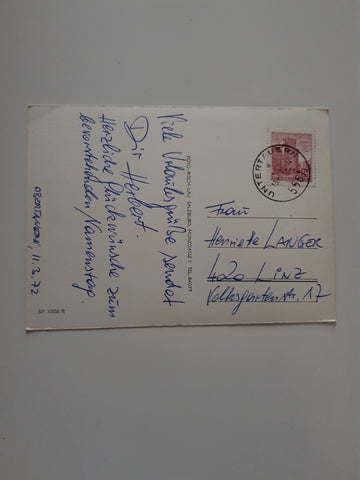 Viele Urlaubsgrüße sendet
Dir Herbert.
Herzliche Glückwünsche zum
bevorstehenden Namenstag.
OBERTAUERN, 11.2.72
SF 10808 R
SALZBURG, MÜNZGASSE 1 TEL. 84077
UNTERTAUERN
5561
Frau
Henriette LANGER
4020 LINZ
Volksgartenstr. 17